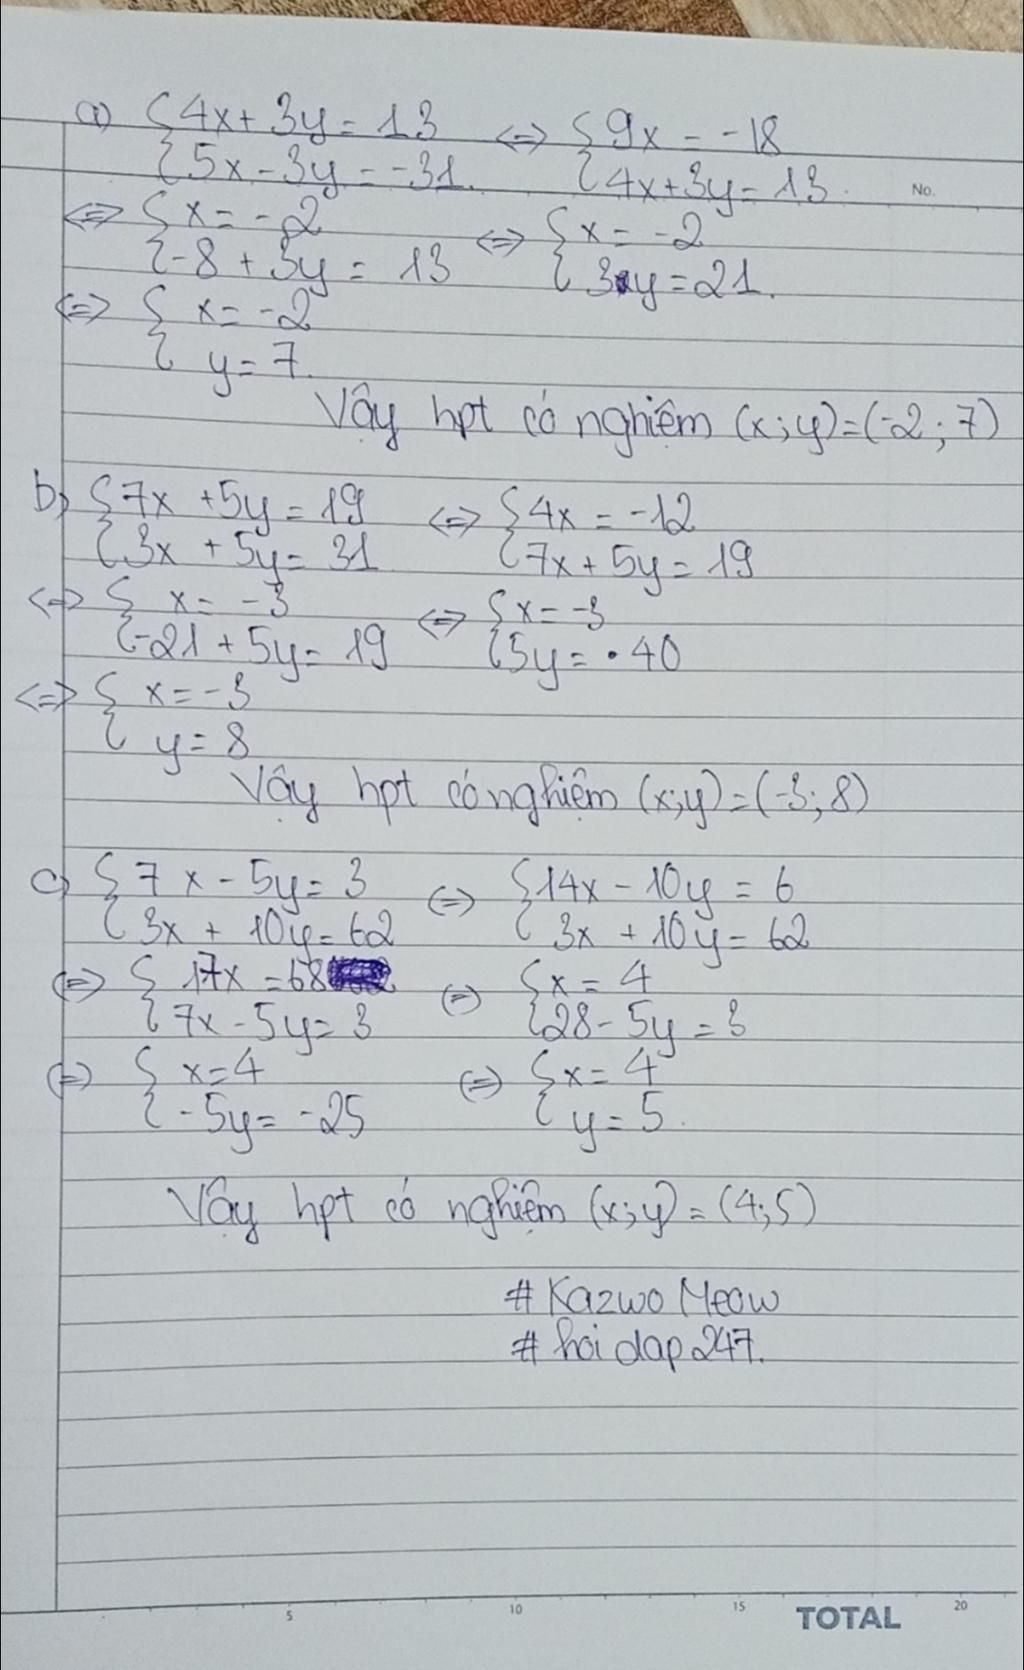 a) { 4x + 3y = 13 <=> { 9x = -18
{ 5x - 3y = -31. { 4x + 3y = 13.
No.
<=> { x = -2 <=> { x = -2
{ -8 + 3y = 13 { 3y = 21.
<=> { x = -2
{ y = 7.
Vậy hpt có nghiệm (x;y)=(-2; 7)
b) { 7x + 5y = 19 <=> { 4x = -12
{ 3x + 5y = 31 { 7x + 5y = 19
<=> { x = -3 <=> { x = -3
{ -21 + 5y = 19 { 5y = 40
<=> { x = -3
{ y = 8
Vậy hpt có nghiệm (x;y)=(-3; 8)
c) { 7x - 5y = 3 <=> { 14x - 10y = 6
{ 3x + 10y = 62 { 3x + 10y = 62
<=> { 17x = 68 <=> { x = 4
{ 7x - 5y = 3 { 28 - 5y = 3
<=> { x = 4 <=> { x = 4
{ -5y = -25 { y = 5.
Vậy hpt có nghiệm (x;y) = (4;5)
# Kazwo Meow
# hoi dap 247.
5 10 15 TOTAL 20